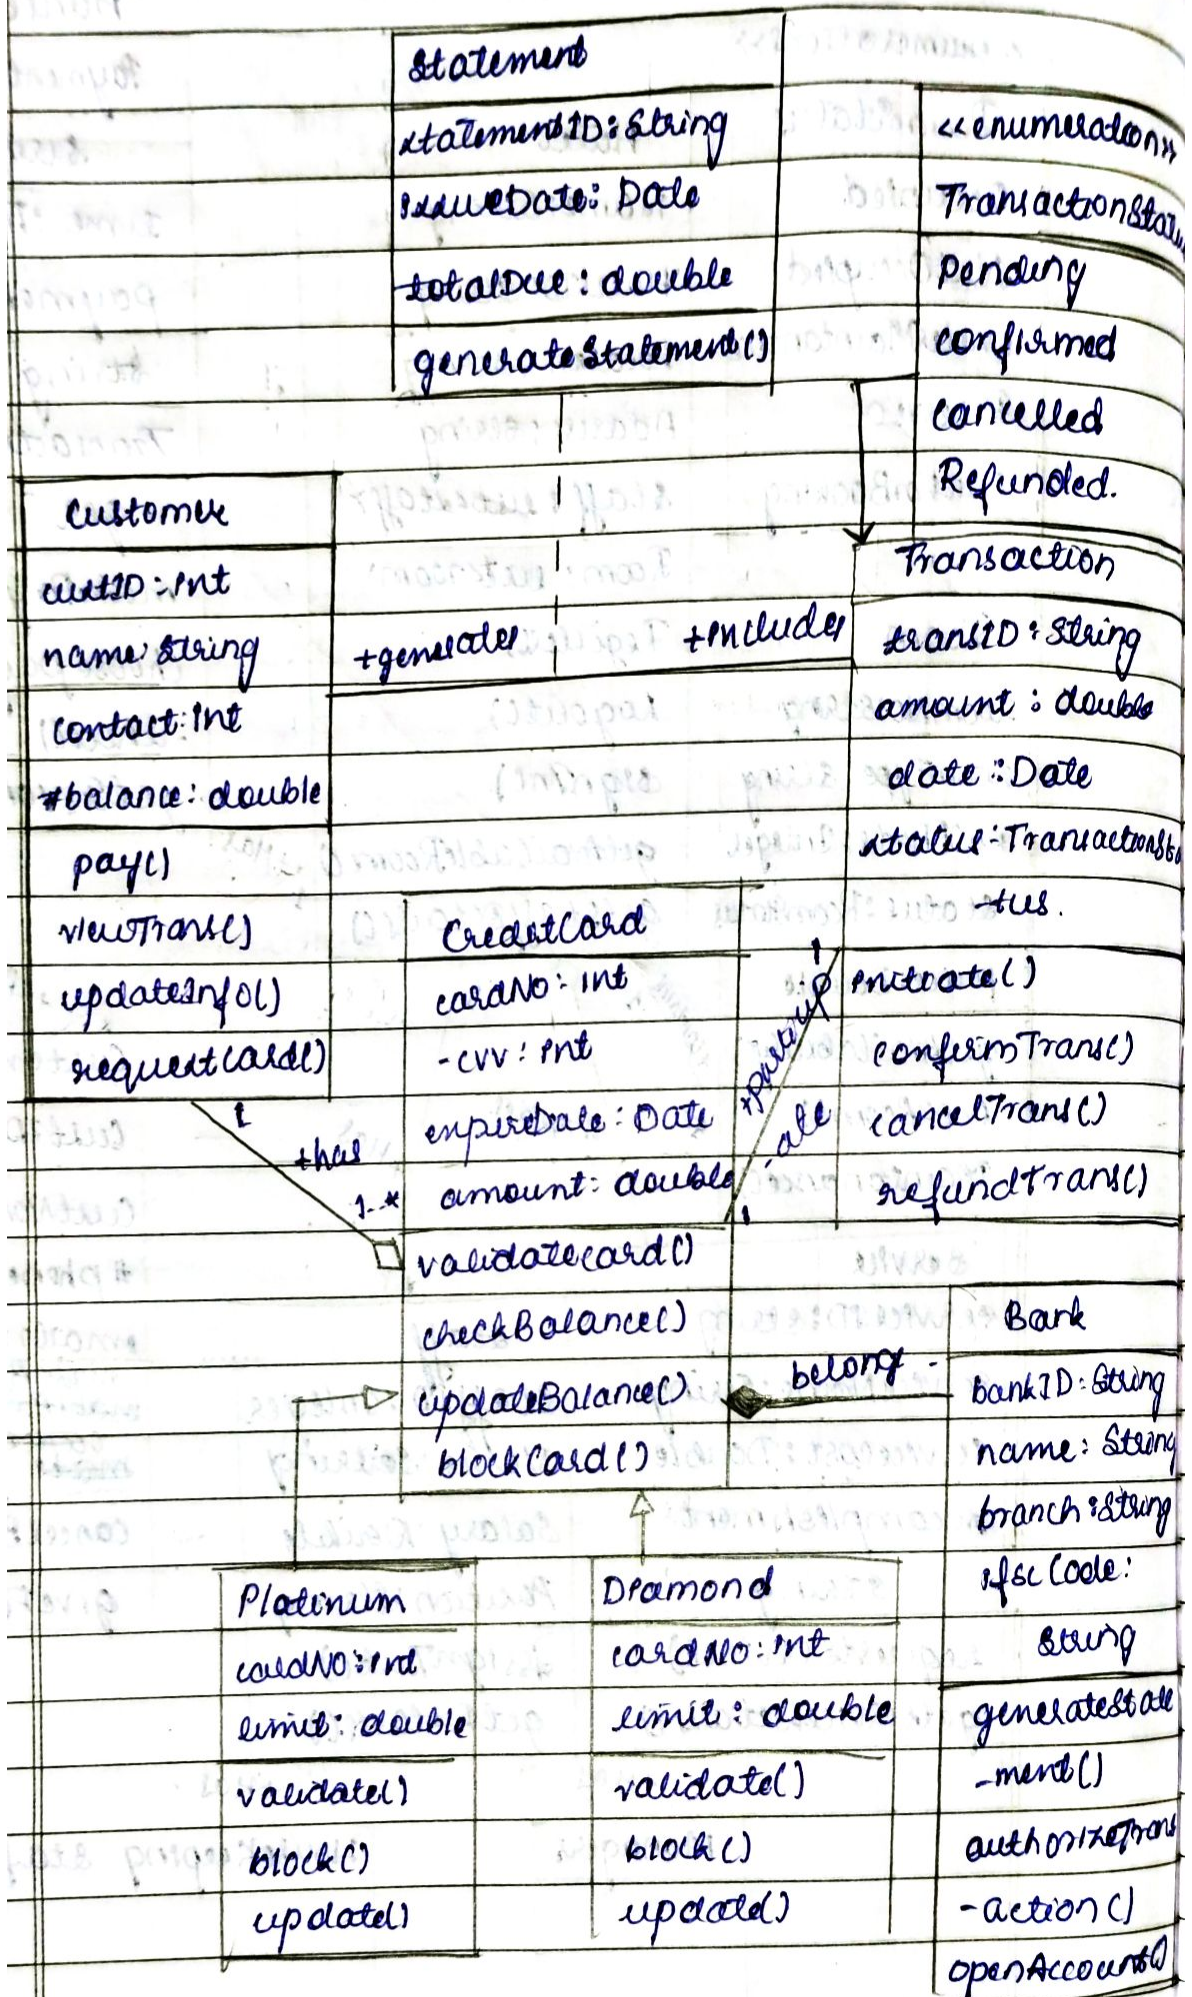 Statement
statementID: String
issueDate: Date
totalDue: double
generateStatement()
<<enumeration>>
TransactionStatu
Pending
confirmed
cancelled
Refunded.
Customer
custID: int
name: String
contact: int
#balance: double
pay()
viewTrans()
updateInfo()
requestCard()
+generates
+includes
Transaction
transID: String
amount: double
date: Date
status: TransactionSta
-tus.
initiate()
confirmTrans()
cancelTrans()
refundTrans()
CreditCard
cardNo: int
-cvv: int
expireDate: Date
amount: double
validatecard()
checkBalance()
updateBalance()
blockCard()
1
+has
1..*
1
-ate
1
belong -
Bank
bankID: String
name: String
branch: String
ifsc Code:
String
generateState
-ment()
authorizeTrans
-action()
openAccount()
Platinum
cardNo: int
limit: double
validate()
block()
update()
Diamond
cardNo: int
limit: double
validate()
block()
update()